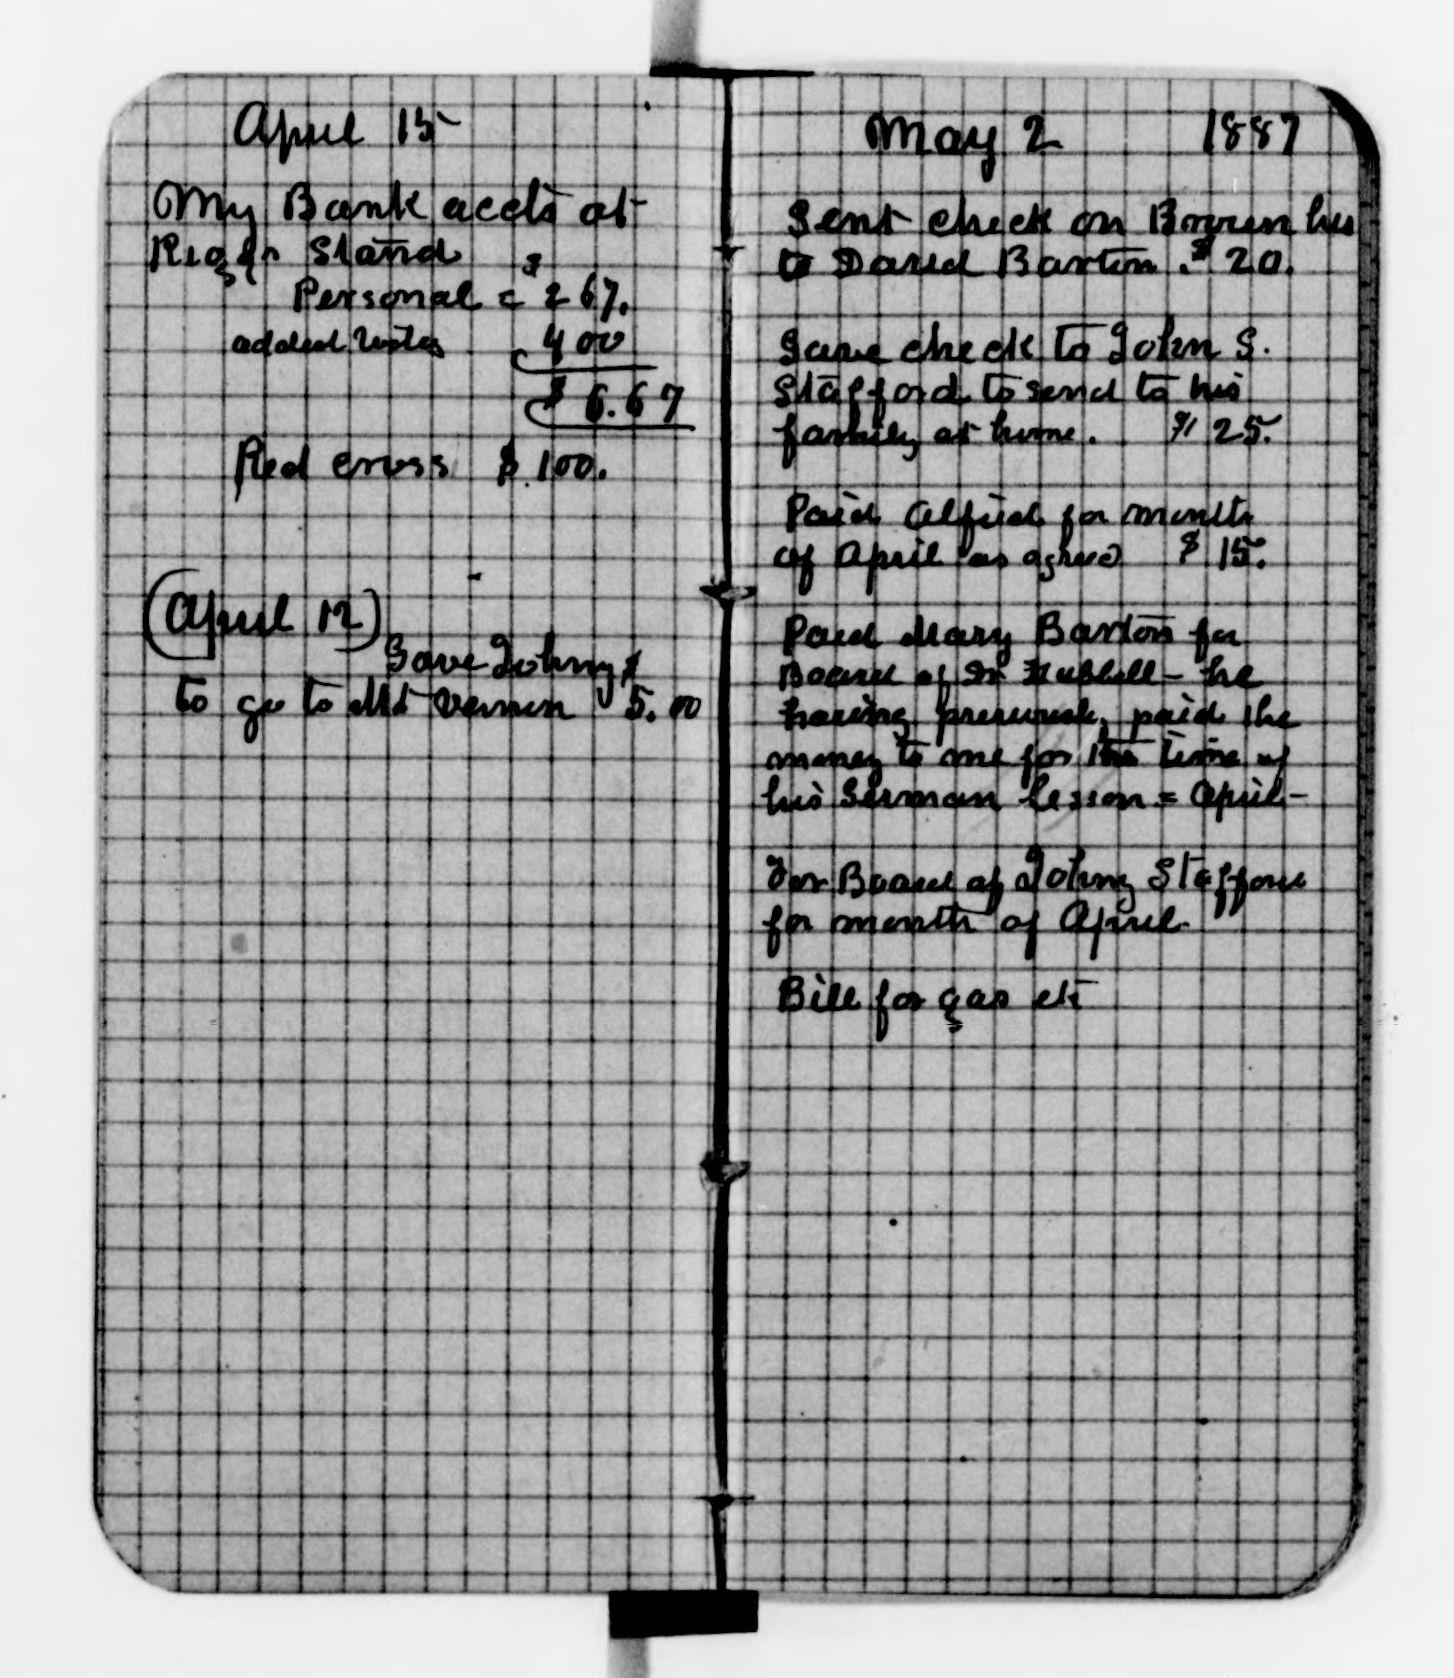 April 15
My Bank accts at
Riggs Stand
$
Personal = 267.
added notes 400
$ 6.67
Red cross $ 100.
(April 12)
Gave Johny $
to go to Mt Vernon 5.00
May 2 1887
Sent check on Brown
to David Barton . $ 20.
Gave check to John S.
Stafford to send to his
family at home. $ 25.
Paid Alfred for month
of April as agreed $ 15.
Paid Mary Barton for
Board of Dr Hubbell – he
having previously paid the
money to me for the time of
his German lesson = April –
For Board of Johny Stafford
for month of April.
Bill for gas etc